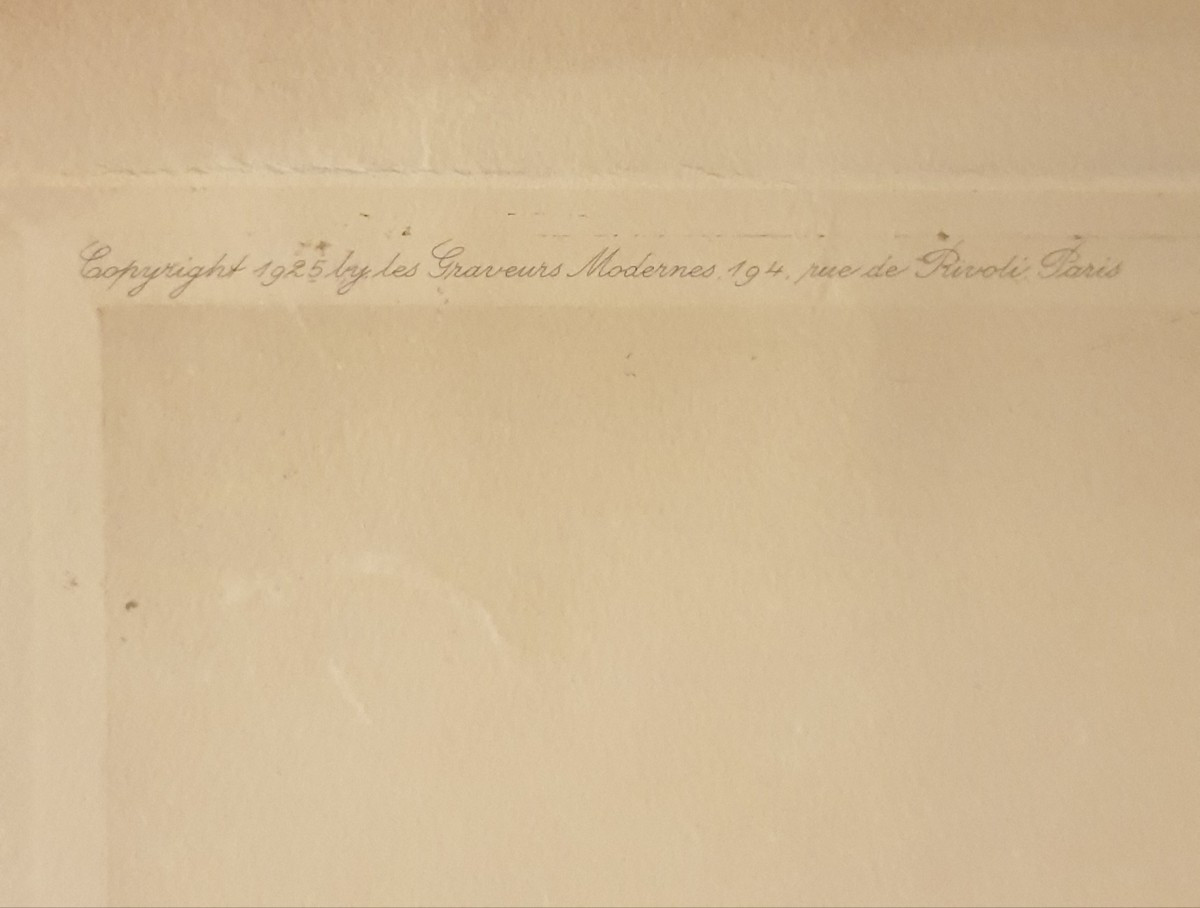 Copyright 1925 by les Graveurs Modernes. 194. rue de Rivoli. Paris